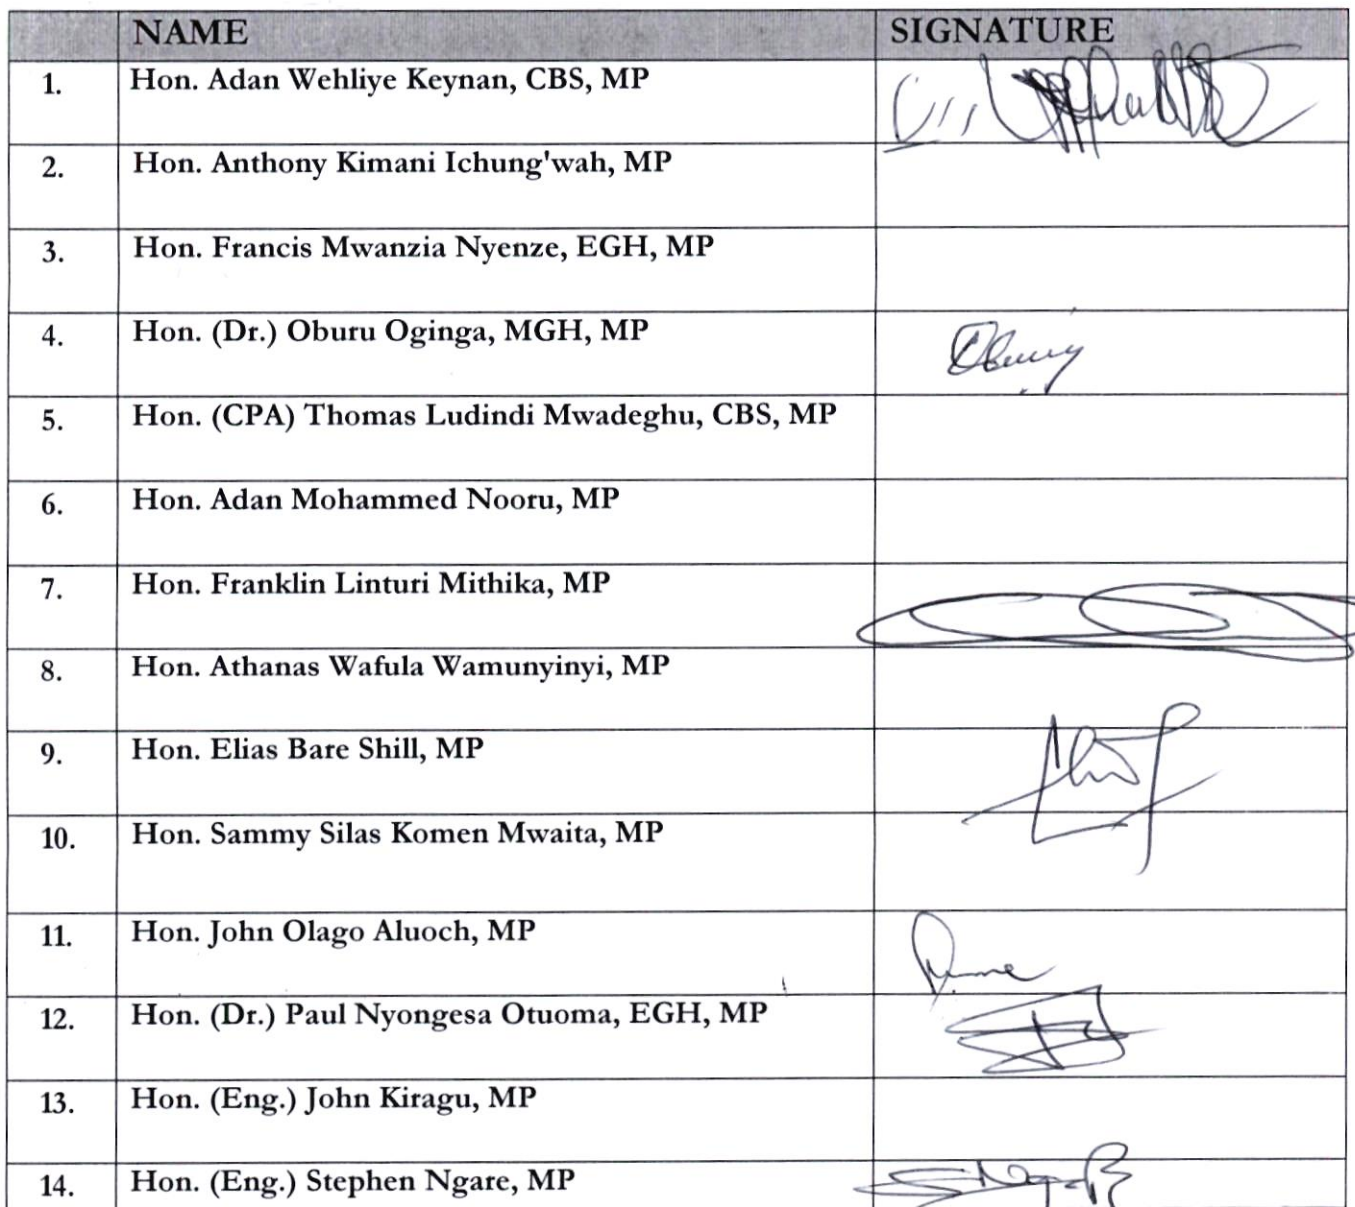 NAME SIGNATURE
1. Hon. Adan Wehliye Keynan, CBS, MP
2. Hon. Anthony Kimani Ichung'wah, MP
3. Hon. Francis Mwanzia Nyenze, EGH, MP
4. Hon. (Dr.) Oburu Oginga, MGH, MP
5. Hon. (CPA) Thomas Ludindi Mwadeghu, CBS, MP
6. Hon. Adan Mohammed Nooru, MP
7. Hon. Franklin Linturi Mithika, MP
8. Hon. Athanas Wafula Wamunyinyi, MP
9. Hon. Elias Bare Shill, MP
10. Hon. Sammy Silas Komen Mwaita, MP
11. Hon. John Olago Aluoch, MP
12. Hon. (Dr.) Paul Nyongesa Otuoma, EGH, MP
13. Hon. (Eng.) John Kiragu, MP
14. Hon. (Eng.) Stephen Ngare, MP